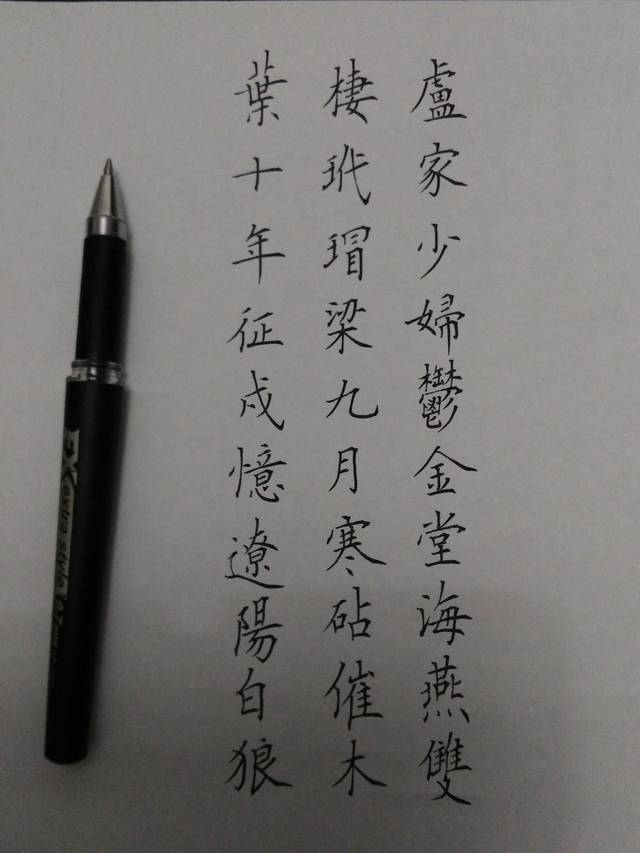 盧家少婦鬱金堂海燕雙
棲玳瑁梁九月寒砧催木
葉十年征戍憶遼陽白狼
extra style 0.7mm